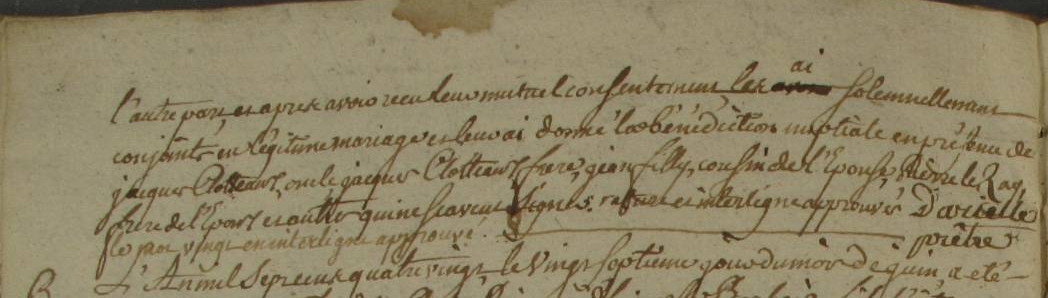 l'autre part, et apres avoir receu leur mutuel consentement, les ai solemnellement
conjoints en légitime mariage et leur ai donné la bénédiction nuptiale en présence de
jacques Clotteau, oncle, jacques Clotteau frere, jean filly, cousin de l'Epouse, Pierre le Ray
frere de l'Epoux et autres qui ne scavent signer. rature et interligne approuvés D'arielle
le mot vingt en interligne approuvé. prêtre
L'An mil sept cent quatre vingt le vingt septieme jour du mois de juin, a été